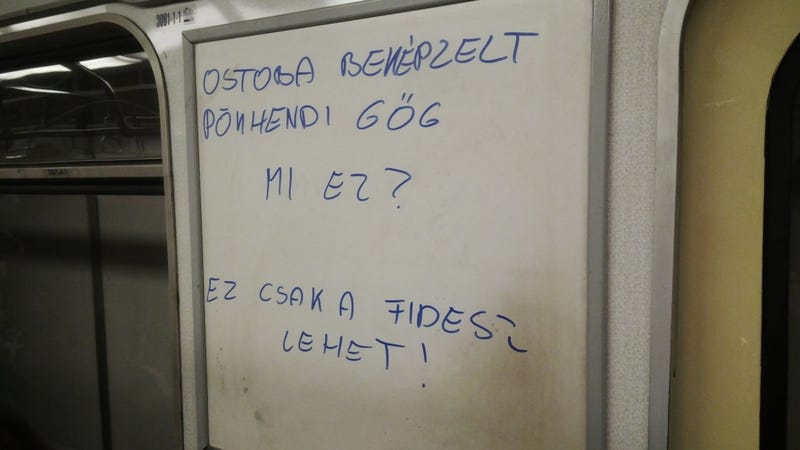 3081-1-1
OSTOBA BEKÉPZELT
PÖKHENDI GŐG
MI EZ?
EZ CSAK A FIDESZ
LEHET!